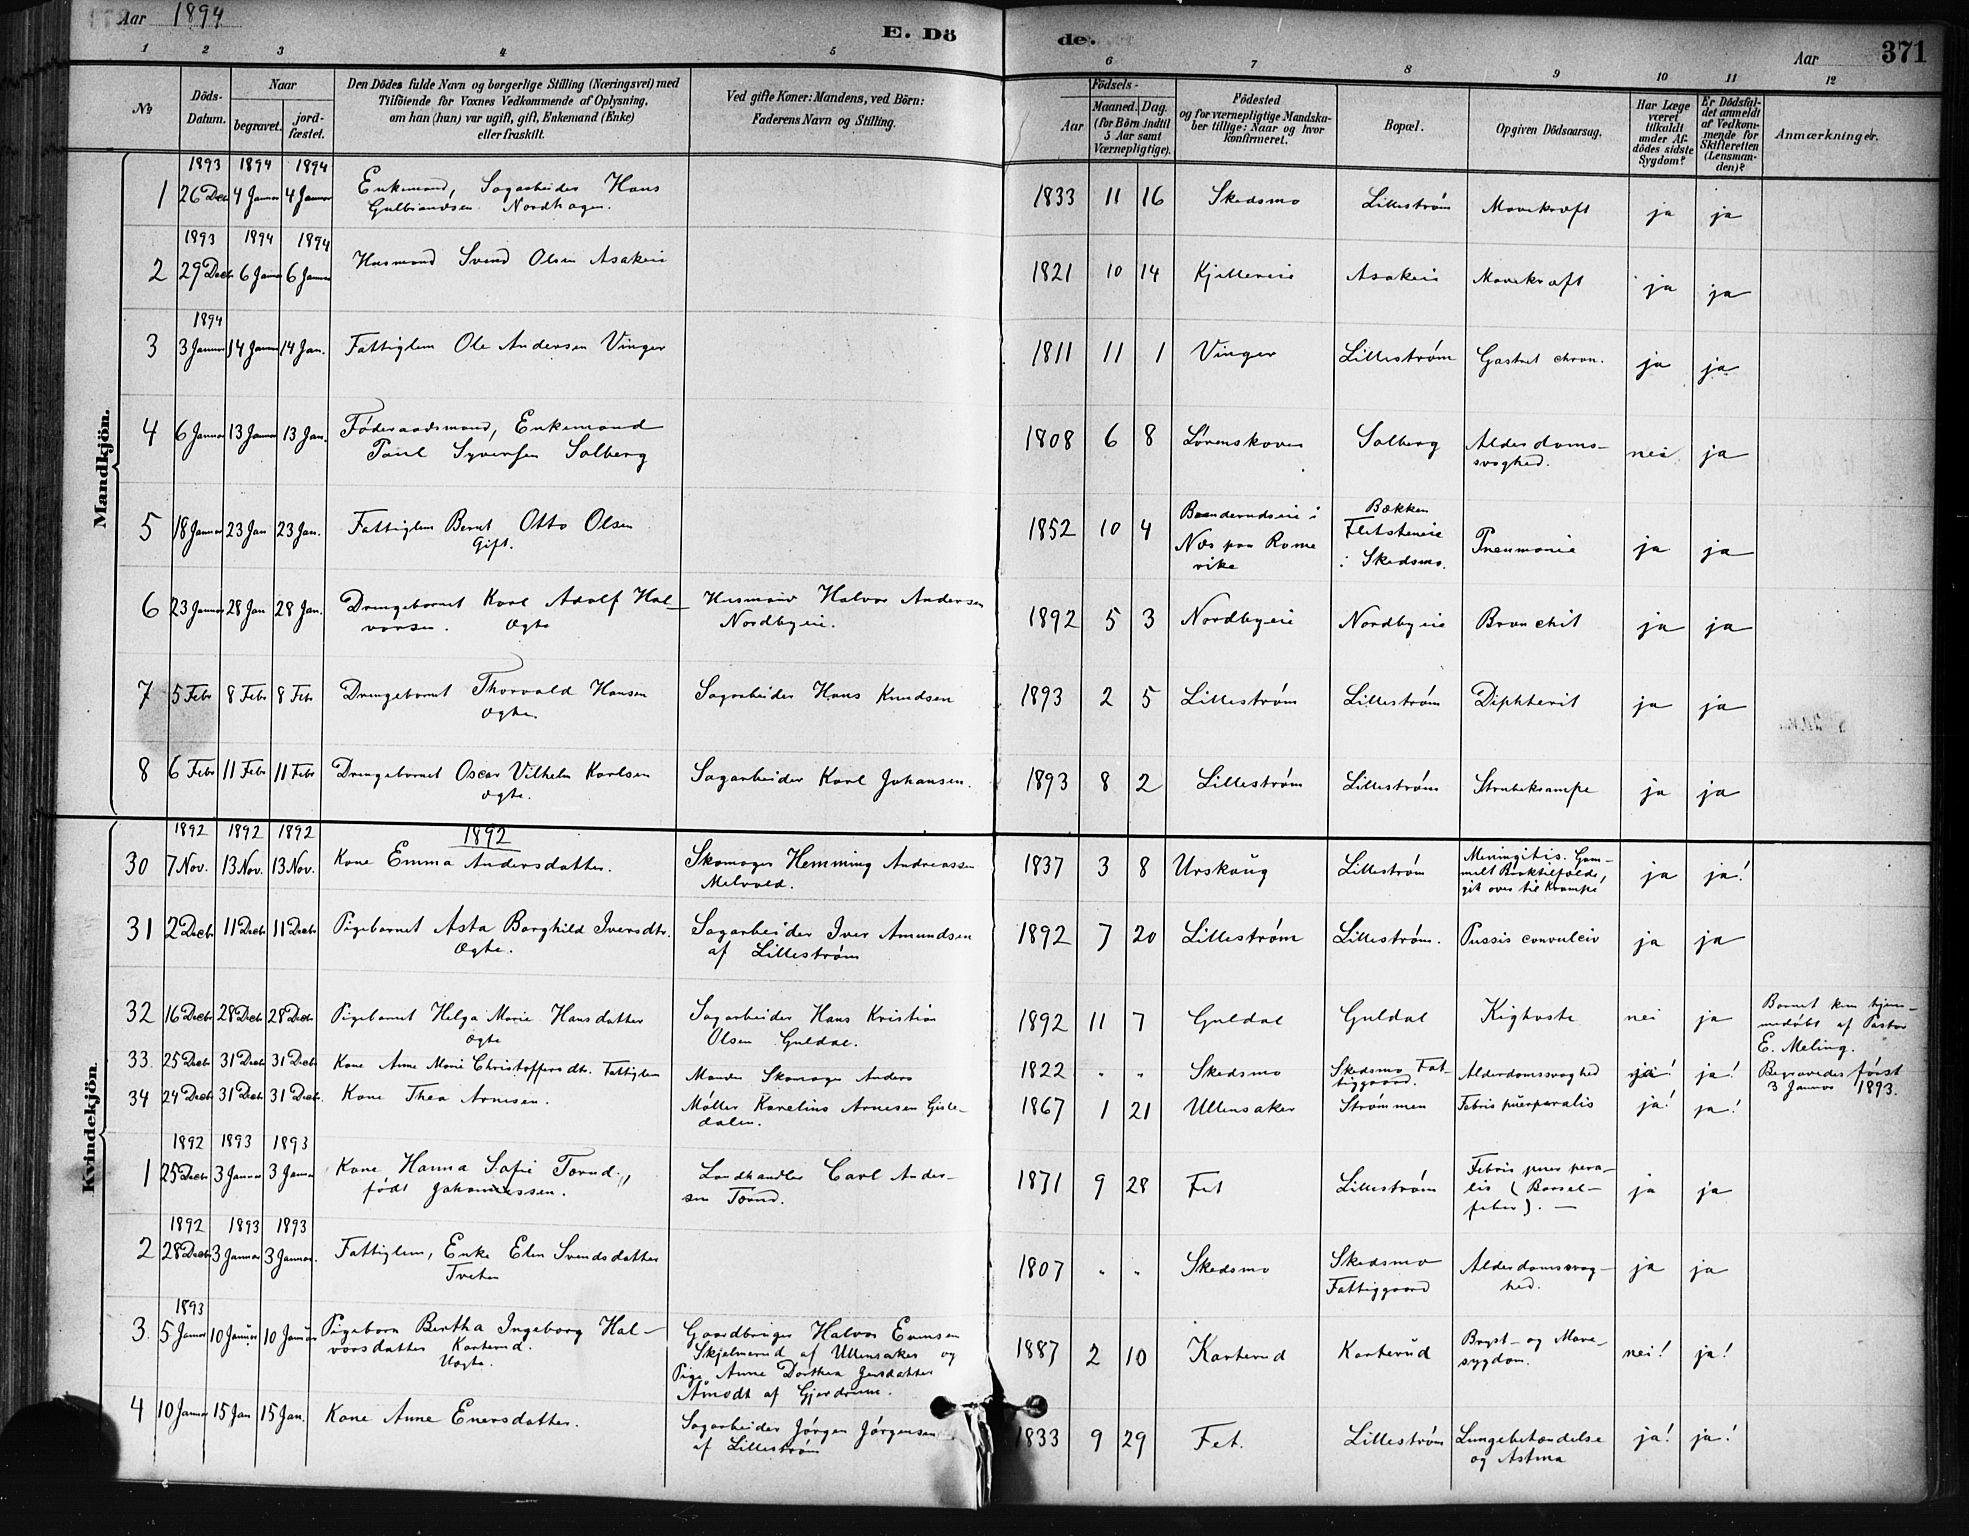 Aar 1894
E. Dö
de.
Aar
371
1 2 3 4 5 6 7 8 9 10 11 12
No.
Döds-Datum.
Naar
begravet.
jord-fæstet.
Den Dödes fulde Navn og borgerlige Stilling (Næringsvei) med
Tilföiende for Voxnes Vedkommende af Oplysning,
om han (hun) var ugift, gift, Enkemand (Enke)
eller fraskilt.
Ved gifte Koner: Mandens, ved Börn:
Faderens Navn og Stilling.
Födsels-
Aar
Maaned. Dag.
(for Börn indtil
5 Aar samt
Værnepligtige).
Födested
og for værnepligtige Mandska-
ber tillige: Naar og hvor
konfirmeret.
Bopæl.
Opgiven Dödsaarsag.
Har Læge
været
tilkaldt
under Af-
dödes sidste
Sygdom?
Er Dödsfal-
det anmeldt
af Vedkom-
mende for
Skifteretten
(Lensman-
den)?
Anmærkninger.
Mandkjön.
1893 1894 1894
1 26 Dec 4 Januar 4 Januar Enkemand, Sagarbeider Hans
Gulbrandsen Nordhagen. 1833 11 16 Skedsmo Lillestrøm Mavekræft ja ja
1893 1894 1894
2 29 Decb 6 Januar 6 Januar Husmand Svend Olsen Asakeie 1821 10 14 Kjellereie Asakeie Mavekræft ja ja
1894
3 3 Januar 14 Januar 14 Jan. Fattiglem Ole Andersen Vinger 1811 11 1 Vinger Lillestrøm Gastrit chron. ja ja
4 6 Januar 13 Januar 13 Jan. Føderaadsmand, Enkemand
Paul Syversen Solberg 1808 6 8 Lørenskoven Solberg Alderdoms-
svaghed. nei ja
5 18 Januar 23 Jan 23 Jan. Fattiglem Bernt Otto Olsen
Gift. 1852 10 4 i
Næs paa Rome
rike
Bækken
i Skedsmo. Pneumonie ja ja
6 23 Januar 28 Jan 28 Jan. Drengebarnet Karl Adolf Hal-
vorsen. Ægte Husmand Halvor Andersen
Nordbyeie. 1892 5 3 Nordbyeie Nordbyeie Bronchit ja ja
7 5 Febr 8 Febr 8 Febr Drengebarnet Thorvald Hansen
Ægte. Sagarbeider Hans Knudsen 1893 2 5 Lillestrøm Lillestrøm Diphterit ja ja
8 6 Febr 11 Febr 11 Febr Drengebarnet Oscar Vilhelm Karlsen
Ægte. Sagarbeider Karl Johansen. 1893 8 2 Lillestrøm Lillestrøm Strubekrampe ja ja
Kvindekjön.
1892 1892 1892 1892
30 7 Nov. 13 Nov. 13 Nov. Kone Emma Andersdatter. Skomager Hemming Andreassen
Melvold. 1837 3 8 Urskaug Lillestrøm Meningitis. Gam-
melt
git over til Krampe ja ja!
31 2 Decb 11 Decb 11 Decb Pigebarnet Asta Borghild Iversdtr.
Ægte. Sagarbeider Iver Amundsen
af Lillestrøm 1892 7 20 Lillestrøm Lillestrøm. Tussis convulciv ja ja
32 16 Decb 28 Decb 28 Decb Pigebarnet Helga Marie Hansdatter
Ægte Sagarbeider Hans Kristian
Olsen Guldal. 1892 11 7 Guldal Guldal Kighoste nei ja Barnet kun hjem-
medøbt af Pastor
E. Meling.
33. 25 Decb 31 Decb 31 Decb Kone Anne Marie Christoffersdtr. Fattiglem Manden Skomager Anders 1822 " " Skedsmo Skedsmo Fat-
tiggaard. Alderdomssvaghed ja! ja! Begravedes først
3 Januar 1893.
34 24 Decb 31 Decb 31 Decb. Kone Thea Arnesen. Møller Karelius Arnesen Gisle-
dalen. 1867 1 21 Ullensaker Strømmen Febris puerperalis ja! ja!
1892 1893 1893
1 25 Decb 3 Januar 3 Januar Kone Hanna Sofie Torud,
født Johannessen. Landhandler Carl Ander-
sen Torud. 1871 9 28 Fet Lillestrøm Febris puerpera-
lis (Barsel-
feber). — ja ja
1892 1893 1893
2 28 Decb 3 Januar 3 Januar. Fattiglem, Enke Elen Svendsdatter
Tveten 1807 " " Skedsmo Skedsmo
Fattiggaard Alderdomssvag-
hed. ja ja
1893
3. 5 Januar 10 Januar 10 Januar Pigebarn Bertha Ingeborg Hal-
vorsdatter Karterud.
Uægte. Gaardbruger Halvor Evensen
Skjelmerud af Ullensaker og
Pige Anne Dorthea Jensdatter
Åmodt af Gjerdrum. 1887 2 10 Karterud Karterud Bryst- og Mave-
sygdom. nei! ja!
4 10 Januar 15 Jan 15 Jan. Kone Anne Enersdatter. Sagarbeider Jørgen Jørgensen
af Lillestrøm 1833 9 29 Fet. Lillestrøm Lungebetændelse
og Astma ja! ja!